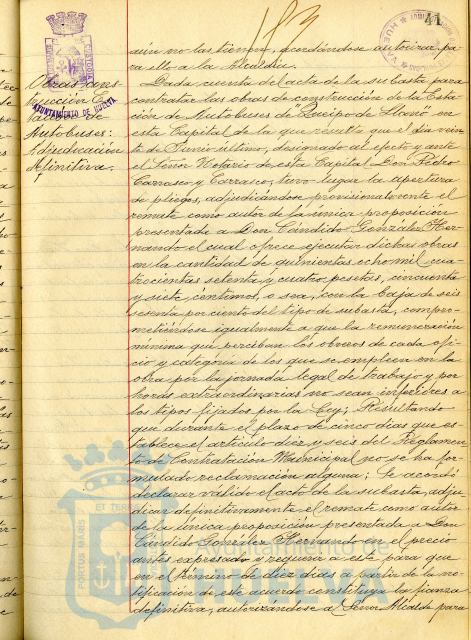 183
41
aún no las tienen, acordándose autorizar pa-
ra ello a la Alcaldía.
Obras cons-
trucción E.
Autobuses:
Adjudicación
definitiva.
AYUNTAMIENTO DE HUELVA
Dada cuenta del acta de la subasta para
contratar las obras de construcción de la Esta-
ción de Autobuses de "Queipo de Llano" en
esta Capital de la que resulta que el día vein-
te de Junio último, designado al efecto y ante
el Señor Notario de esta Capital Don Pedro
Carrasco y Carrasco, tuvo lugar la apertura
de pliegos, adjudicándose provisionalmente el
remate como autor de la única proposición
presentada a Don Cándido González Her-
nando el cual ofrece ejecutar dichas obras
en la cantidad de quinientas ocho mil cua-
trocientas setenta y cuatro pesetas, cincuenta
y siete céntimos, o sea, con la baja de seis
setenta por ciento del tipo de subasta, compro-
metiéndose igualmente a que la remuneración
mínima que perciban los obreros de cada ofi-
cio y categoría de los que se empleen en la
obra por la jornada legal de trabajo y por
horas extraordinarias no sean inferiores a
los tipos fijados por la Ley; Resultando
que durante el plazo de cinco días que es-
tablece el artículo diez y seis del Reglamen-
to de Contratación Municipal no se ha for-
mulado reclamación alguna; Se acordó
declarar válido el acto de la subasta, adju-
dicar definitivamente el remate como autor
de la única proposición presentada a Don
Cándido González Hernando en el precio
antes expresado y requerir a éste para que
en el término de diez días a partir de la no-
tificación de este acuerdo constituya la fianza
definitiva, autorizándose al Señor Alcalde para
PORTUS MARIS
ET TERR
Ayuntamiento de
HUELVA